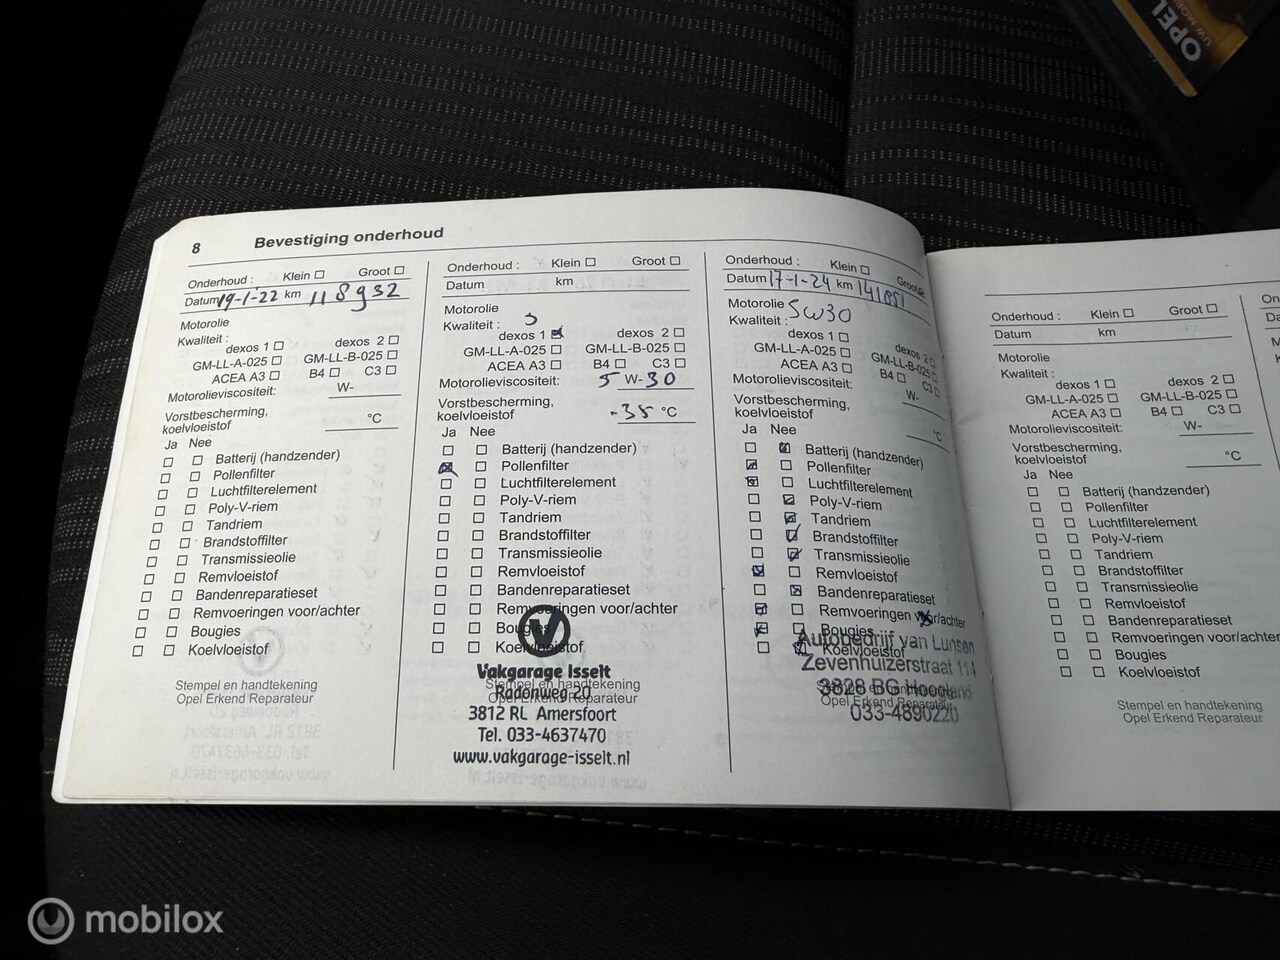 OPEL
8 Bevestiging onderhoud
Onderhoud : Klein Groot
Datum 19-1-22 km 118932
Motorolie
Kwaliteit :
dexos 1 dexos 2
GM-LL-A-025 GM-LL-B-025
ACEA A3 B4 C3
Motorolieviscositeit: W-
Vorstbescherming,
koelvloeistof °C
Ja Nee
Batterij (handzender)
Pollenfilter
Luchtfilterelement
Poly-V-riem
Tandriem
Brandstoffilter
Transmissieolie
Remvloeistof
Bandenreparatieset
Remvoeringen voor/achter
Bougies
Koelvloeistof
Stempel en handtekening
Opel Erkend Reparateur
Onderhoud : Klein Groot
Datum km
Motorolie
Kwaliteit :
dexos 1 dexos 2
GM-LL-A-025 GM-LL-B-025
ACEA A3 B4 C3
Motorolieviscositeit: 5 W-30
Vorstbescherming,
koelvloeistof -35 °C
Ja Nee
Batterij (handzender)
Pollenfilter
Luchtfilterelement
Poly-V-riem
Tandriem
Brandstoffilter
Transmissieolie
Remvloeistof
Bandenreparatieset
Remvoeringen voor/achter
Bougies
Koelvloeistof
Vakgarage Isselt
Stempel en handtekening
Radonweg 20
Opel Erkend Reparateur
3812 RL Amersfoort
Tel. 033-4637470
www.vakgarage-isselt.nl
Onderhoud : Klein Groot
Datum 17-1-24 km 141081
Motorolie 5W30
Kwaliteit :
dexos 1 dexos 2
GM-LL-A-025 GM-LL-B-025
ACEA A3 B4 C3
Motorolieviscositeit: W-
Vorstbescherming,
koelvloeistof °C
Ja Nee
Batterij (handzender)
Pollenfilter
Luchtfilterelement
Poly-V-riem
Tandriem
Brandstoffilter
Transmissieolie
Remvloeistof
Bandenreparatieset
Remvoeringen voor/achter
Bougies
Koelvloeistof
Autobedrijf van Lunsen
Zevenhuizerstraat 114
3828 BG Hoogland
Opel Erkend Reparateur
033-4890220
Onderhoud : Klein Groot
Datum km
Motorolie
Kwaliteit :
dexos 1 dexos 2
GM-LL-A-025 GM-LL-B-025
ACEA A3 B4 C3
Motorolieviscositeit: W-
Vorstbescherming,
koelvloeistof °C
Ja Nee
Batterij (handzender)
Pollenfilter
Luchtfilterelement
Poly-V-riem
Tandriem
Brandstoffilter
Transmissieolie
Remvloeistof
Bandenreparatieset
Remvoeringen voor/achter
Bougies
Koelvloeistof
Stempel en handtekening
Opel Erkend Reparateur
mobilox